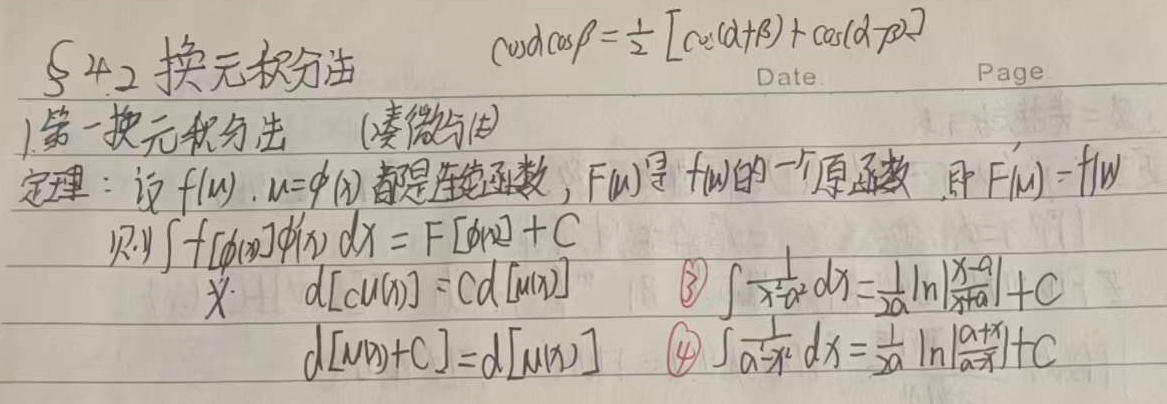 §4.2 换元积分法
cosαcosβ=½[cos(α+β)+cos(α-β)]
Date.
Page
1.第一换元积分法 (凑微分法)
定理：设f(u).u=φ(x)都是连续函数，F(u)是f(u)的一个原函数 即F'(u)=f(u)
则∫f[φ(x)]φ'(x)dx=F[φ(x)]+C
d[cu(x)]=Cd[u(x)] ③∫1/(x²-a²)dx=1/2a ln|(x-a)/(x+a)|+C
d[u(x)+C]=d[u(x)] ④∫1/(a²-x²)dx=1/2a ln|(a+x)/(a-x)|+C